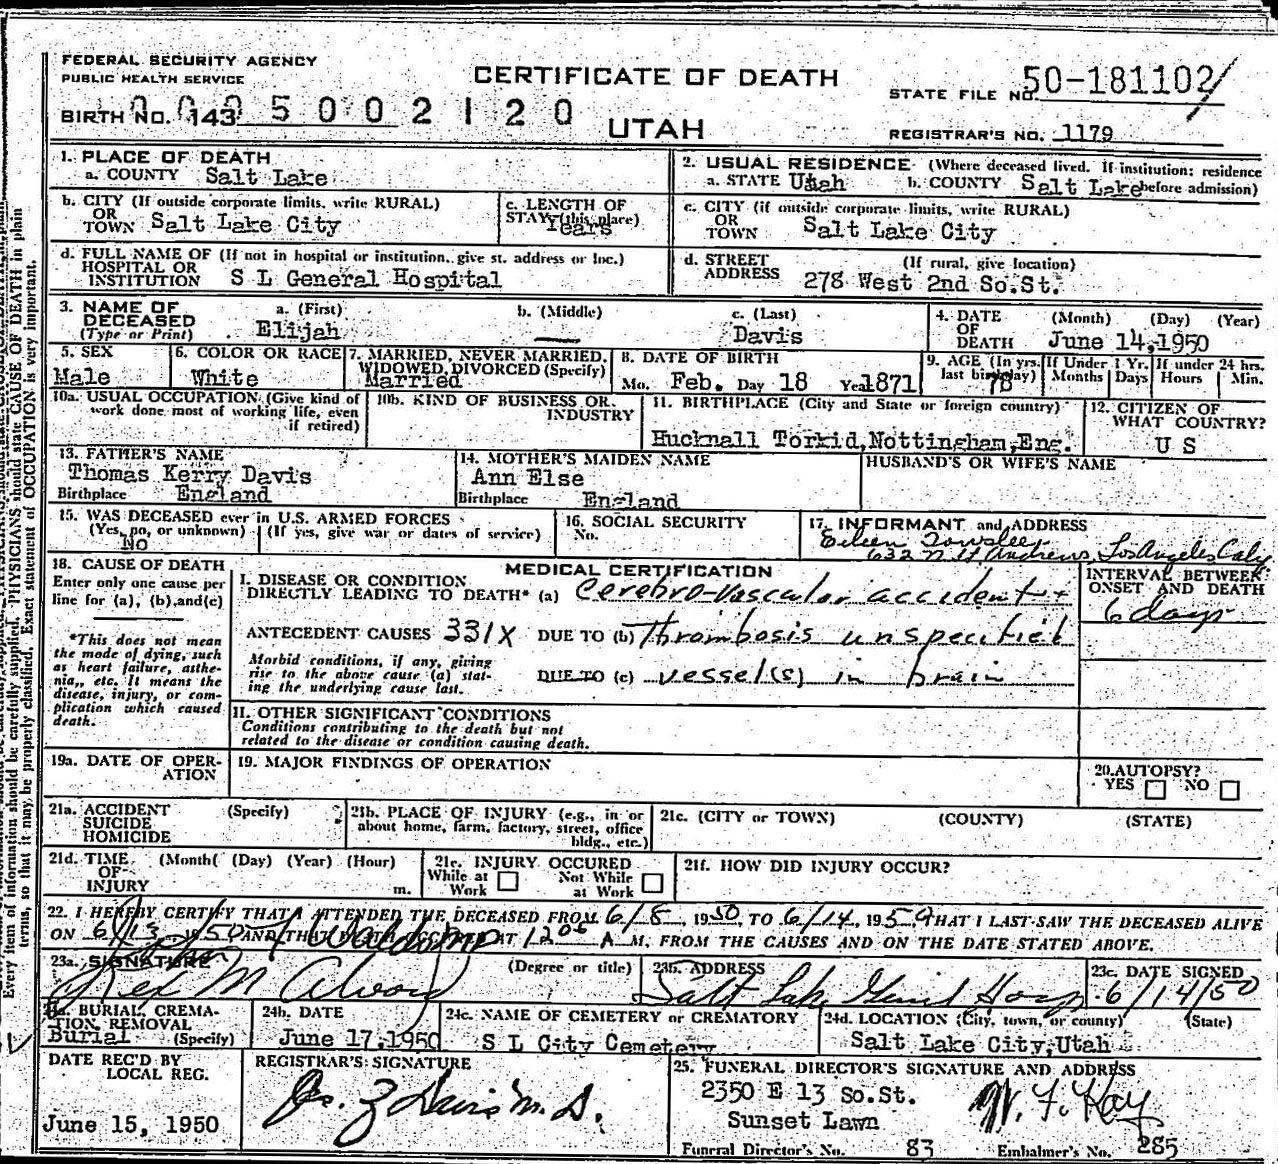 FEDERAL SECURITY AGENCY
PUBLIC HEALTH SERVICE
CERTIFICATE OF DEATH
STATE FILE NO. 50-181102
BIRTH NO. 143 0005002120
UTAH
REGISTRAR'S NO. 1179
1. PLACE OF DEATH
a. COUNTY Salt Lake
2. USUAL RESIDENCE (Where deceased lived. If institution: residence before admission)
a. STATE Utah b. COUNTY Salt Lake
b. CITY (If outside corporate limits, write RURAL)
OR TOWN Salt Lake City
c. LENGTH OF STAY (this place)
Years
c. CITY (if outside corporate limits, write RURAL)
OR TOWN Salt Lake City
d. FULL NAME OF (If not in hospital or institution, give st. address or loc.)
HOSPITAL OR INSTITUTION S L General Hospital
d. STREET ADDRESS (If rural, give location)
278 West 2nd So.St.
3. NAME OF DECEASED (Type or Print)
a. (First) b. (Middle) c. (Last)
Elijah — Davis
4. DATE OF DEATH (Month) (Day) (Year)
June 14,1950
5. SEX
Male
6. COLOR OR RACE
White
7. MARRIED, NEVER MARRIED, WIDOWED, DIVORCED (Specify)
Married
8. DATE OF BIRTH
Mo. Feb. Day 18 Year 1871
9. AGE (In yrs. last birthday) If Under 1 Yr. If under 24 hrs.
Months Days Hours Min.
10a. USUAL OCCUPATION (Give kind of work done most of working life, even if retired)
10b. KIND OF BUSINESS OR INDUSTRY
11. BIRTHPLACE (City and State or foreign country)
Hucknall Torkid,Nottingham,Eng.
12. CITIZEN OF WHAT COUNTRY?
U S
13. FATHER'S NAME
Thomas Kerry Davis
Birthplace England
14. MOTHER'S MAIDEN NAME
Ann Else
Birthplace England
HUSBAND'S OR WIFE'S NAME
15. WAS DECEASED ever in U.S. ARMED FORCES
(Yes, no, or unknown) (If yes, give war or dates of service)
No
16. SOCIAL SECURITY No.
17. INFORMANT and ADDRESS
Eileen Towslee
632 N. St Andrews, Los Angeles Calif
18. CAUSE OF DEATH
Enter only one cause per line for (a), (b), and (c)
*This does not mean the mode of dying, such as heart failure, asthenia, etc. It means the disease, injury, or complication which caused death.
MEDICAL CERTIFICATION
I. DISEASE OR CONDITION DIRECTLY LEADING TO DEATH* (a) Cerebro-vascular accident
ANTECEDENT CAUSES 331X DUE TO (b) Thrombosis unspecified
Morbid conditions, if any, giving rise to the above cause (a) stating the underlying cause last.
DUE TO (c) vessel(s) in brain
INTERVAL BETWEEN ONSET AND DEATH
6 days
II. OTHER SIGNIFICANT CONDITIONS
Conditions contributing to the death but not related to the disease or condition causing death.
19a. DATE OF OPERATION
19. MAJOR FINDINGS OF OPERATION
20. AUTOPSY?
YES NO
21a. ACCIDENT SUICIDE HOMICIDE (Specify)
21b. PLACE OF INJURY (e.g., in or about home, farm, factory, street, office bldg., etc.)
21c. (CITY or TOWN) (COUNTY) (STATE)
21d. TIME OF INJURY (Month( (Day) (Year) (Hour) m.
21e. INJURY OCCURED
While at Work Not While at Work
21f. HOW DID INJURY OCCUR?
22. I HEREBY CERTIFY THAT I ATTENDED THE DECEASED FROM 6/8, 1950 TO 6/14, 1950, THAT I LAST SAW THE DECEASED ALIVE
ON 6/13, 1950 AND AT 12 05 A M. FROM THE CAUSES AND ON THE DATE STATED ABOVE.
23a. SIGNATURE (Degree or title)
Rex M Alvord
23b. ADDRESS
Salt Lake Genl Hosp
23c. DATE SIGNED
6/14/50
24a. BURIAL, CREMATION, REMOVAL (Specify)
Burial
24b. DATE
June 17,1950
24c. NAME OF CEMETERY or CREMATORY
S L City Cemetery
24d. LOCATION (City, town, or county) (State)
Salt Lake City,Utah
DATE REC'D BY LOCAL REG.
June 15, 1950
REGISTRAR'S SIGNATURE
Davis M.D.
25. FUNERAL DIRECTOR'S SIGNATURE AND ADDRESS
2350 E 13 So.St.
Sunset Lawn
Funeral Director's No. 83
Embalmer's No. 285
Every item of information should be carefully supplied. PHYSICIANS should state CAUSE OF DEATH in plain
terms, so that it may be properly classified. Exact statement of OCCUPATION is very important.